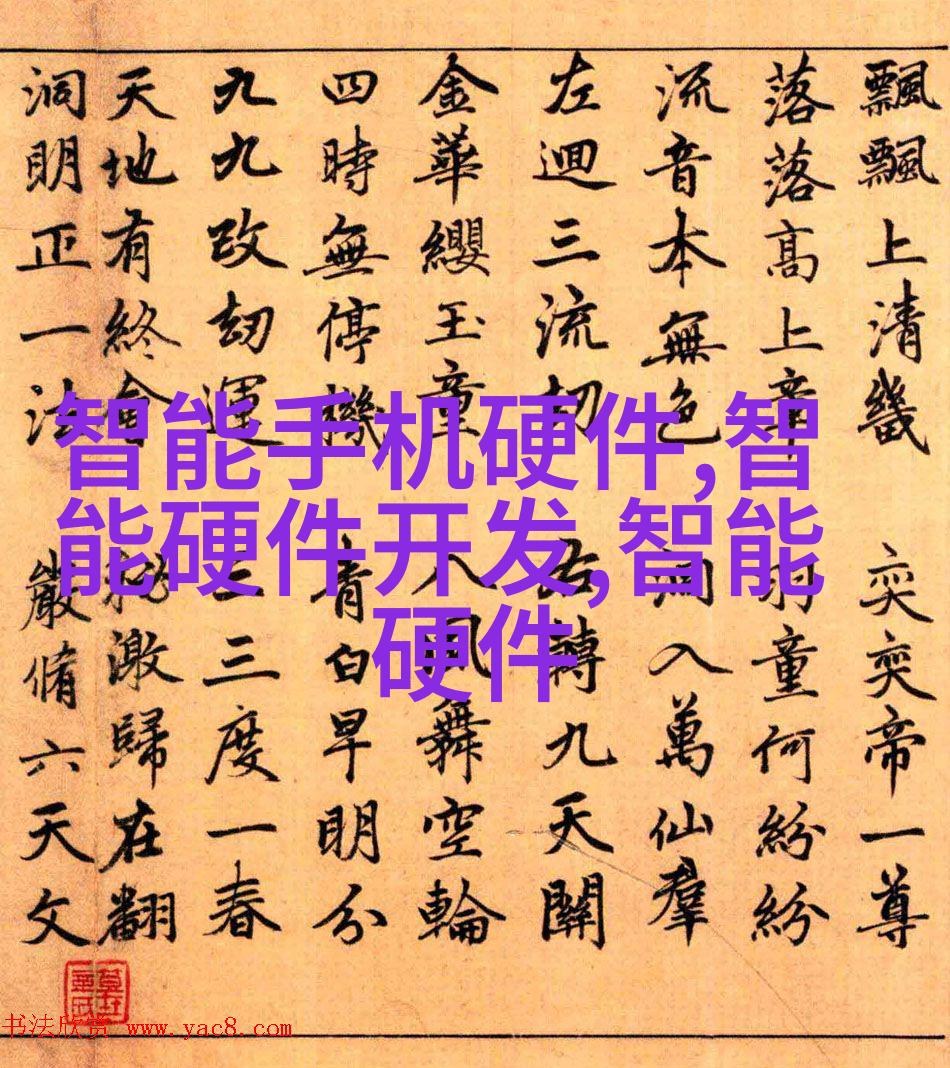 飄飄上清畿 奕奕帝一尊
落落高上章 童何紛紛
流音本無色 洞入萬仙羣
左迴三流 轉九天關
金華纓玉童 八風舞空輪
四時無停機 青白早明分
九九改劫運 三三度一春
天地有終會 激歸在翻
洞明正一法 嚴脩六天文
智能手机硬件,智
能硬件开发,智能
硬件
书法欣赏 www.yac8.com